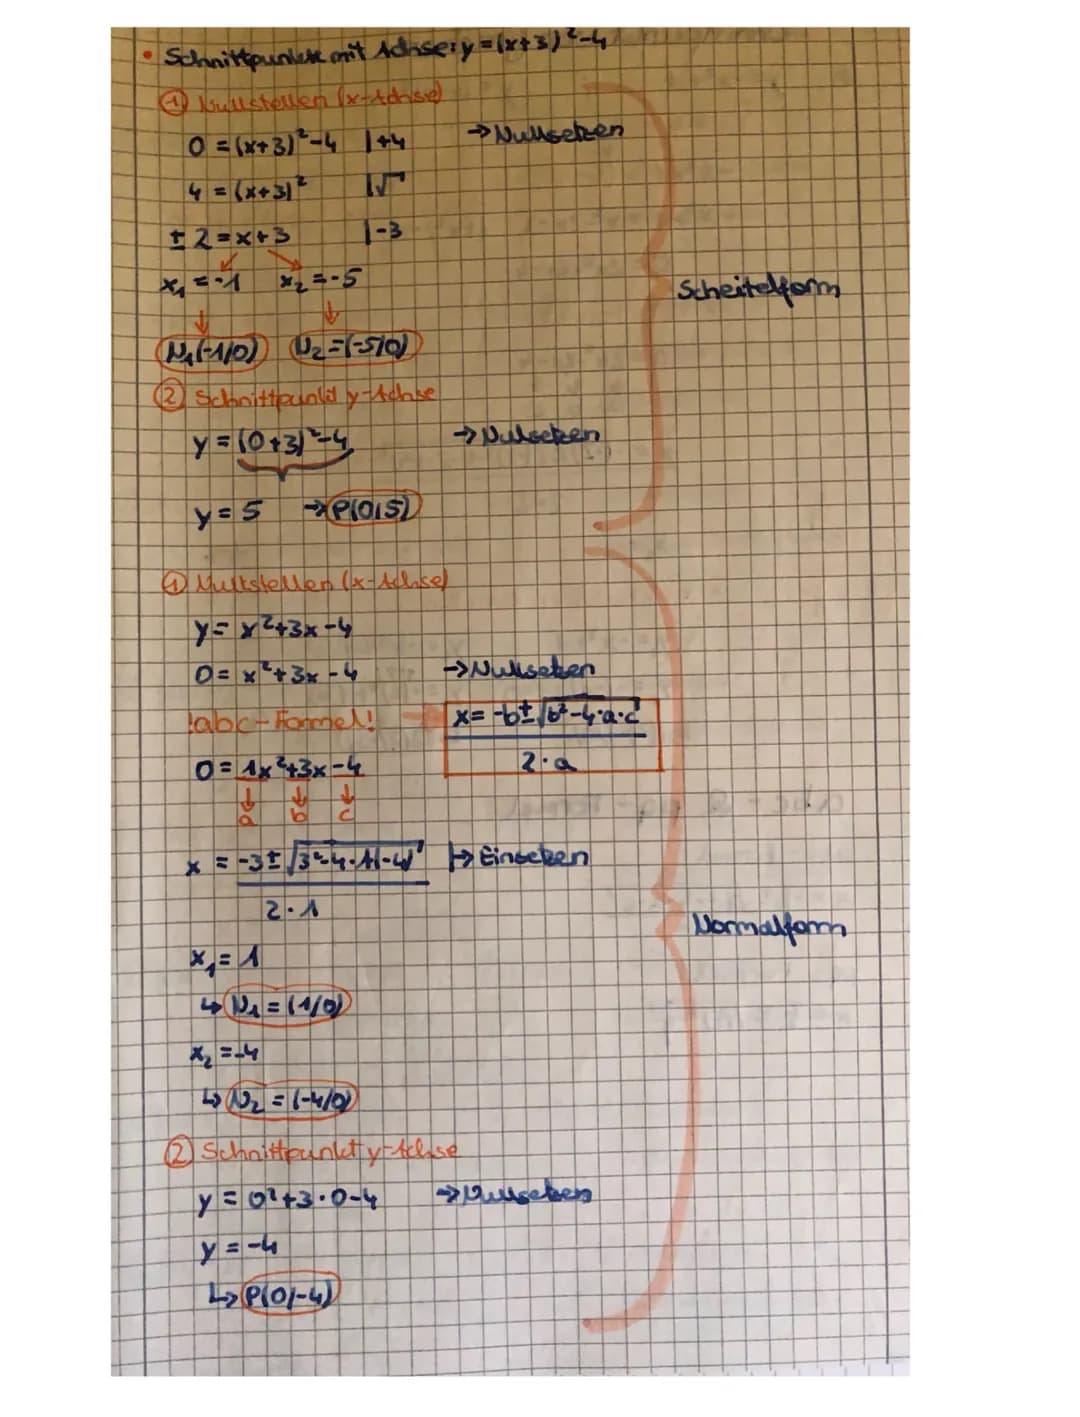 • Schnittpunkte mit Achse: y = (x+3)²-4
① Nullstellen (x-Achse)
0 = (x+3)²-4 |+4 → Nullsetzen
4 = (x+3)² |√
± 2 = x+3 |-3
x₁ = -1 x₂ = -5
N₁(-1/0) N₂ = (-5/0)
Scheitelform
② Schnittpunkt y-Achse
y = (0+3)²-4 → Nullsetzen
y = 5 → P(0/5)
① Nullstellen (x-Achse)
y = x²+3x-4
0 = x²+3x-4 → Nullsetzen
!abc-Formel! → x = -b±√b²-4·a·c
2·a
0 = 1x²+3x-4
a b c
x = -3±√3²-4·1·(-4) |→ Einsetzen
2·1
Normalform
x₁ = 1
↳ N₁ = (1/0)
x₂ = -4
↳ N₂ = (-4/0)
② Schnittpunkt y-Achse
y = 0²+3·0-4 → Nullsetzen
y = -4
↳ P(0/-4)